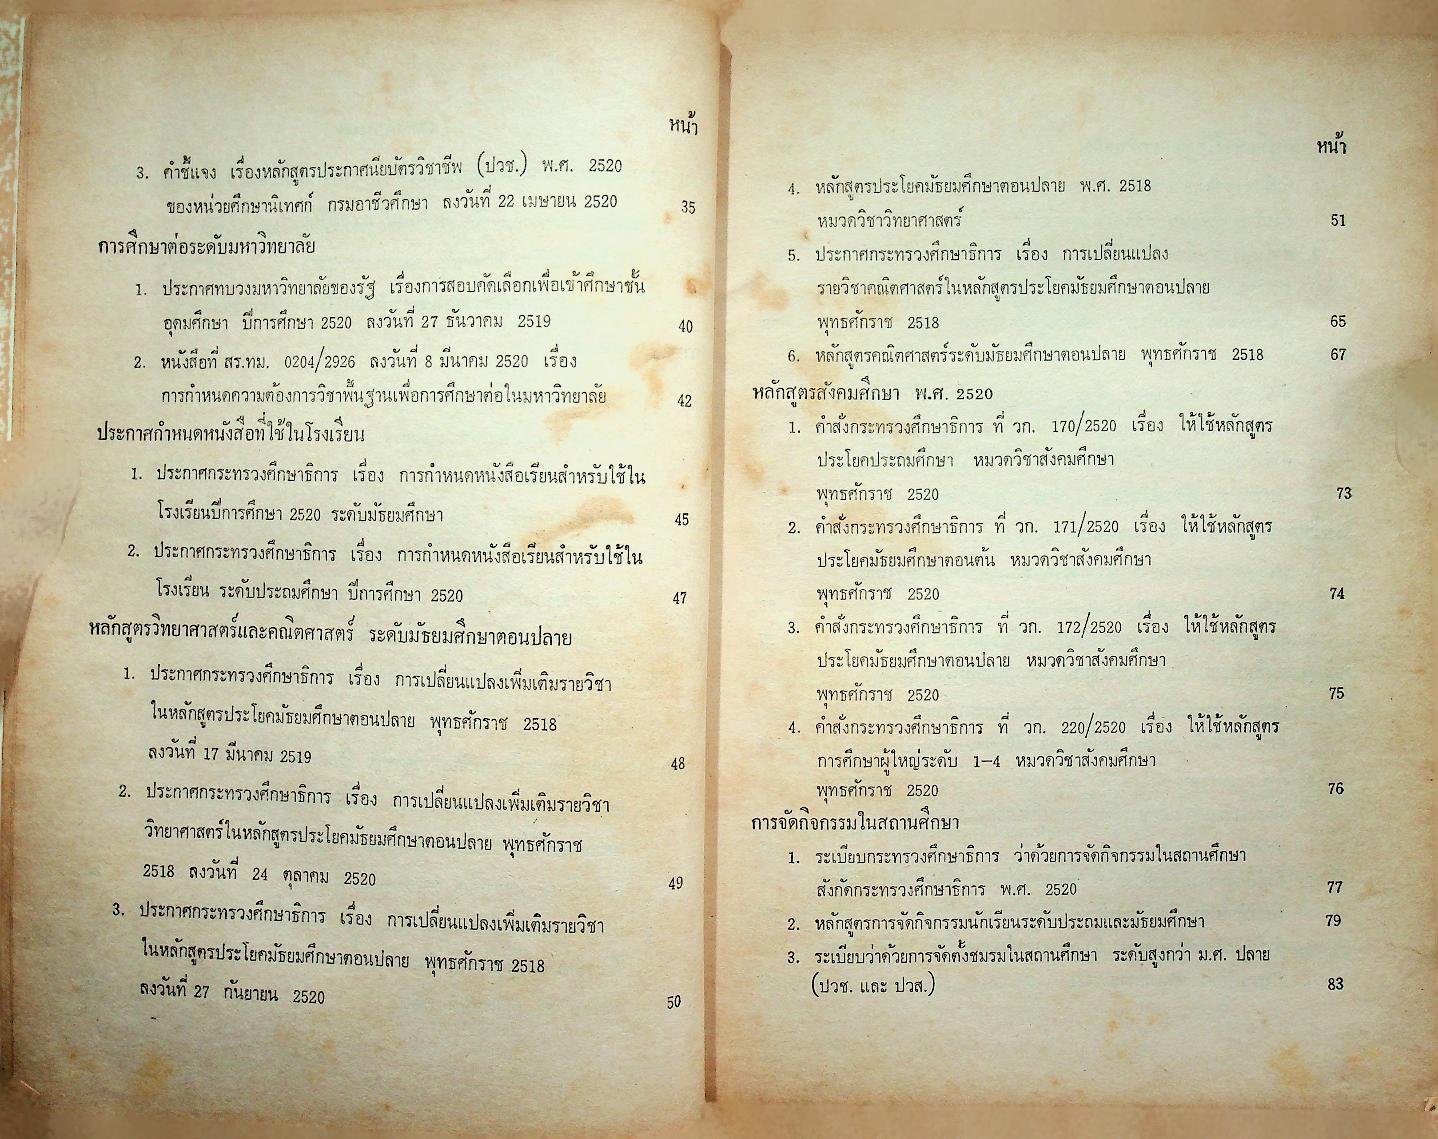 หน้า
3. คำชี้แจง เรื่องหลักสูตรประกาศนียบัตรวิชาชีพ (ปวช.) พ.ศ. 2520
ของหน่วยศึกษานิเทศก์ กรมอาชีวศึกษา ลงวันที่ 22 เมษายน 2520 35
การศึกษาต่อระดับมหาวิทยาลัย
1. ประกาศทบวงมหาวิทยาลัยของรัฐ เรื่องการสอบคัดเลือกเพื่อเข้าศึกษาชั้น
อุดมศึกษา ปีการศึกษา 2520 ลงวันที่ 27 ธันวาคม 2519 40
2. หนังสือที่ สร.ทม. 0204/2926 ลงวันที่ 8 มีนาคม 2520 เรื่อง
การกำหนดความต้องการวิชาพื้นฐานเพื่อการศึกษาต่อในมหาวิทยาลัย 42
ประกาศกำหนดหนังสือที่ใช้ในโรงเรียน
1. ประกาศกระทรวงศึกษาธิการ เรื่อง การกำหนดหนังสือเรียนสำหรับใช้ใน
โรงเรียนปีการศึกษา 2520 ระดับมัธยมศึกษา 45
2. ประกาศกระทรวงศึกษาธิการ เรื่อง การกำหนดหนังสือเรียนสำหรับใช้ใน
โรงเรียน ระดับประถมศึกษา ปีการศึกษา 2520 47
หลักสูตรวิทยาศาสตร์และคณิตศาสตร์ ระดับมัธยมศึกษาตอนปลาย
1. ประกาศกระทรวงศึกษาธิการ เรื่อง การเปลี่ยนแปลงเพิ่มเติมรายวิชา
ในหลักสูตรประโยคมัธยมศึกษาตอนปลาย พุทธศักราช 2518
ลงวันที่ 17 มีนาคม 2519 48
2. ประกาศกระทรวงศึกษาธิการ เรื่อง การเปลี่ยนแปลงเพิ่มเติมรายวิชา
วิทยาศาสตร์ในหลักสูตรประโยคมัธยมศึกษาตอนปลาย พุทธศักราช
2518 ลงวันที่ 24 ตุลาคม 2520 49
3. ประกาศกระทรวงศึกษาธิการ เรื่อง การเปลี่ยนแปลงเพิ่มเติมรายวิชา
ในหลักสูตรประโยคมัธยมศึกษาตอนปลาย พุทธศักราช 2518
ลงวันที่ 27 กันยายน 2520 50
หน้า
4. หลักสูตรประโยคมัธยมศึกษาตอนปลาย พ.ศ. 2518
หมวดวิชาวิทยาศาสตร์ 51
5. ประกาศกระทรวงศึกษาธิการ เรื่อง การเปลี่ยนแปลง
รายวิชาคณิตศาสตร์ในหลักสูตรประโยคมัธยมศึกษาตอนปลาย
พุทธศักราช 2518 65
6. หลักสูตรคณิตศาสตร์ระดับมัธยมศึกษาตอนปลาย พุทธศักราช 2518 67
หลักสูตรสังคมศึกษา พ.ศ. 2520
1. คำสั่งกระทรวงศึกษาธิการ ที่ วก. 170/2520 เรื่อง ให้ใช้หลักสูตร
ประโยคประถมศึกษา หมวดวิชาสังคมศึกษา
พุทธศักราช 2520 73
2. คำสั่งกระทรวงศึกษาธิการ ที่ วก. 171/2520 เรื่อง ให้ใช้หลักสูตร
ประโยคมัธยมศึกษาตอนต้น หมวดวิชาสังคมศึกษา
พุทธศักราช 2520 74
3. คำสั่งกระทรวงศึกษาธิการ ที่ วก. 172/2520 เรื่อง ให้ใช้หลักสูตร
ประโยคมัธยมศึกษาตอนปลาย หมวดวิชาสังคมศึกษา
พุทธศักราช 2520 75
4. คำสั่งกระทรวงศึกษาธิการ ที่ วก. 220/2520 เรื่อง ให้ใช้หลักสูตร
การศึกษาผู้ใหญ่ระดับ 1-4 หมวดวิชาสังคมศึกษา
พุทธศักราช 2520 76
การจัดกิจกรรมในสถานศึกษา
1. ระเบียบกระทรวงศึกษาธิการ ว่าด้วยการจัดกิจกรรมในสถานศึกษา
สังกัดกระทรวงศึกษาธิการ พ.ศ. 2520 77
2. หลักสูตรการจัดกิจกรรมนักเรียนระดับประถมและมัธยมศึกษา 79
3. ระเบียบว่าด้วยการจัดตั้งชมรมในสถานศึกษา ระดับสูงกว่า ม.ศ. ปลาย
(ปวช. และ ปวส.) 83